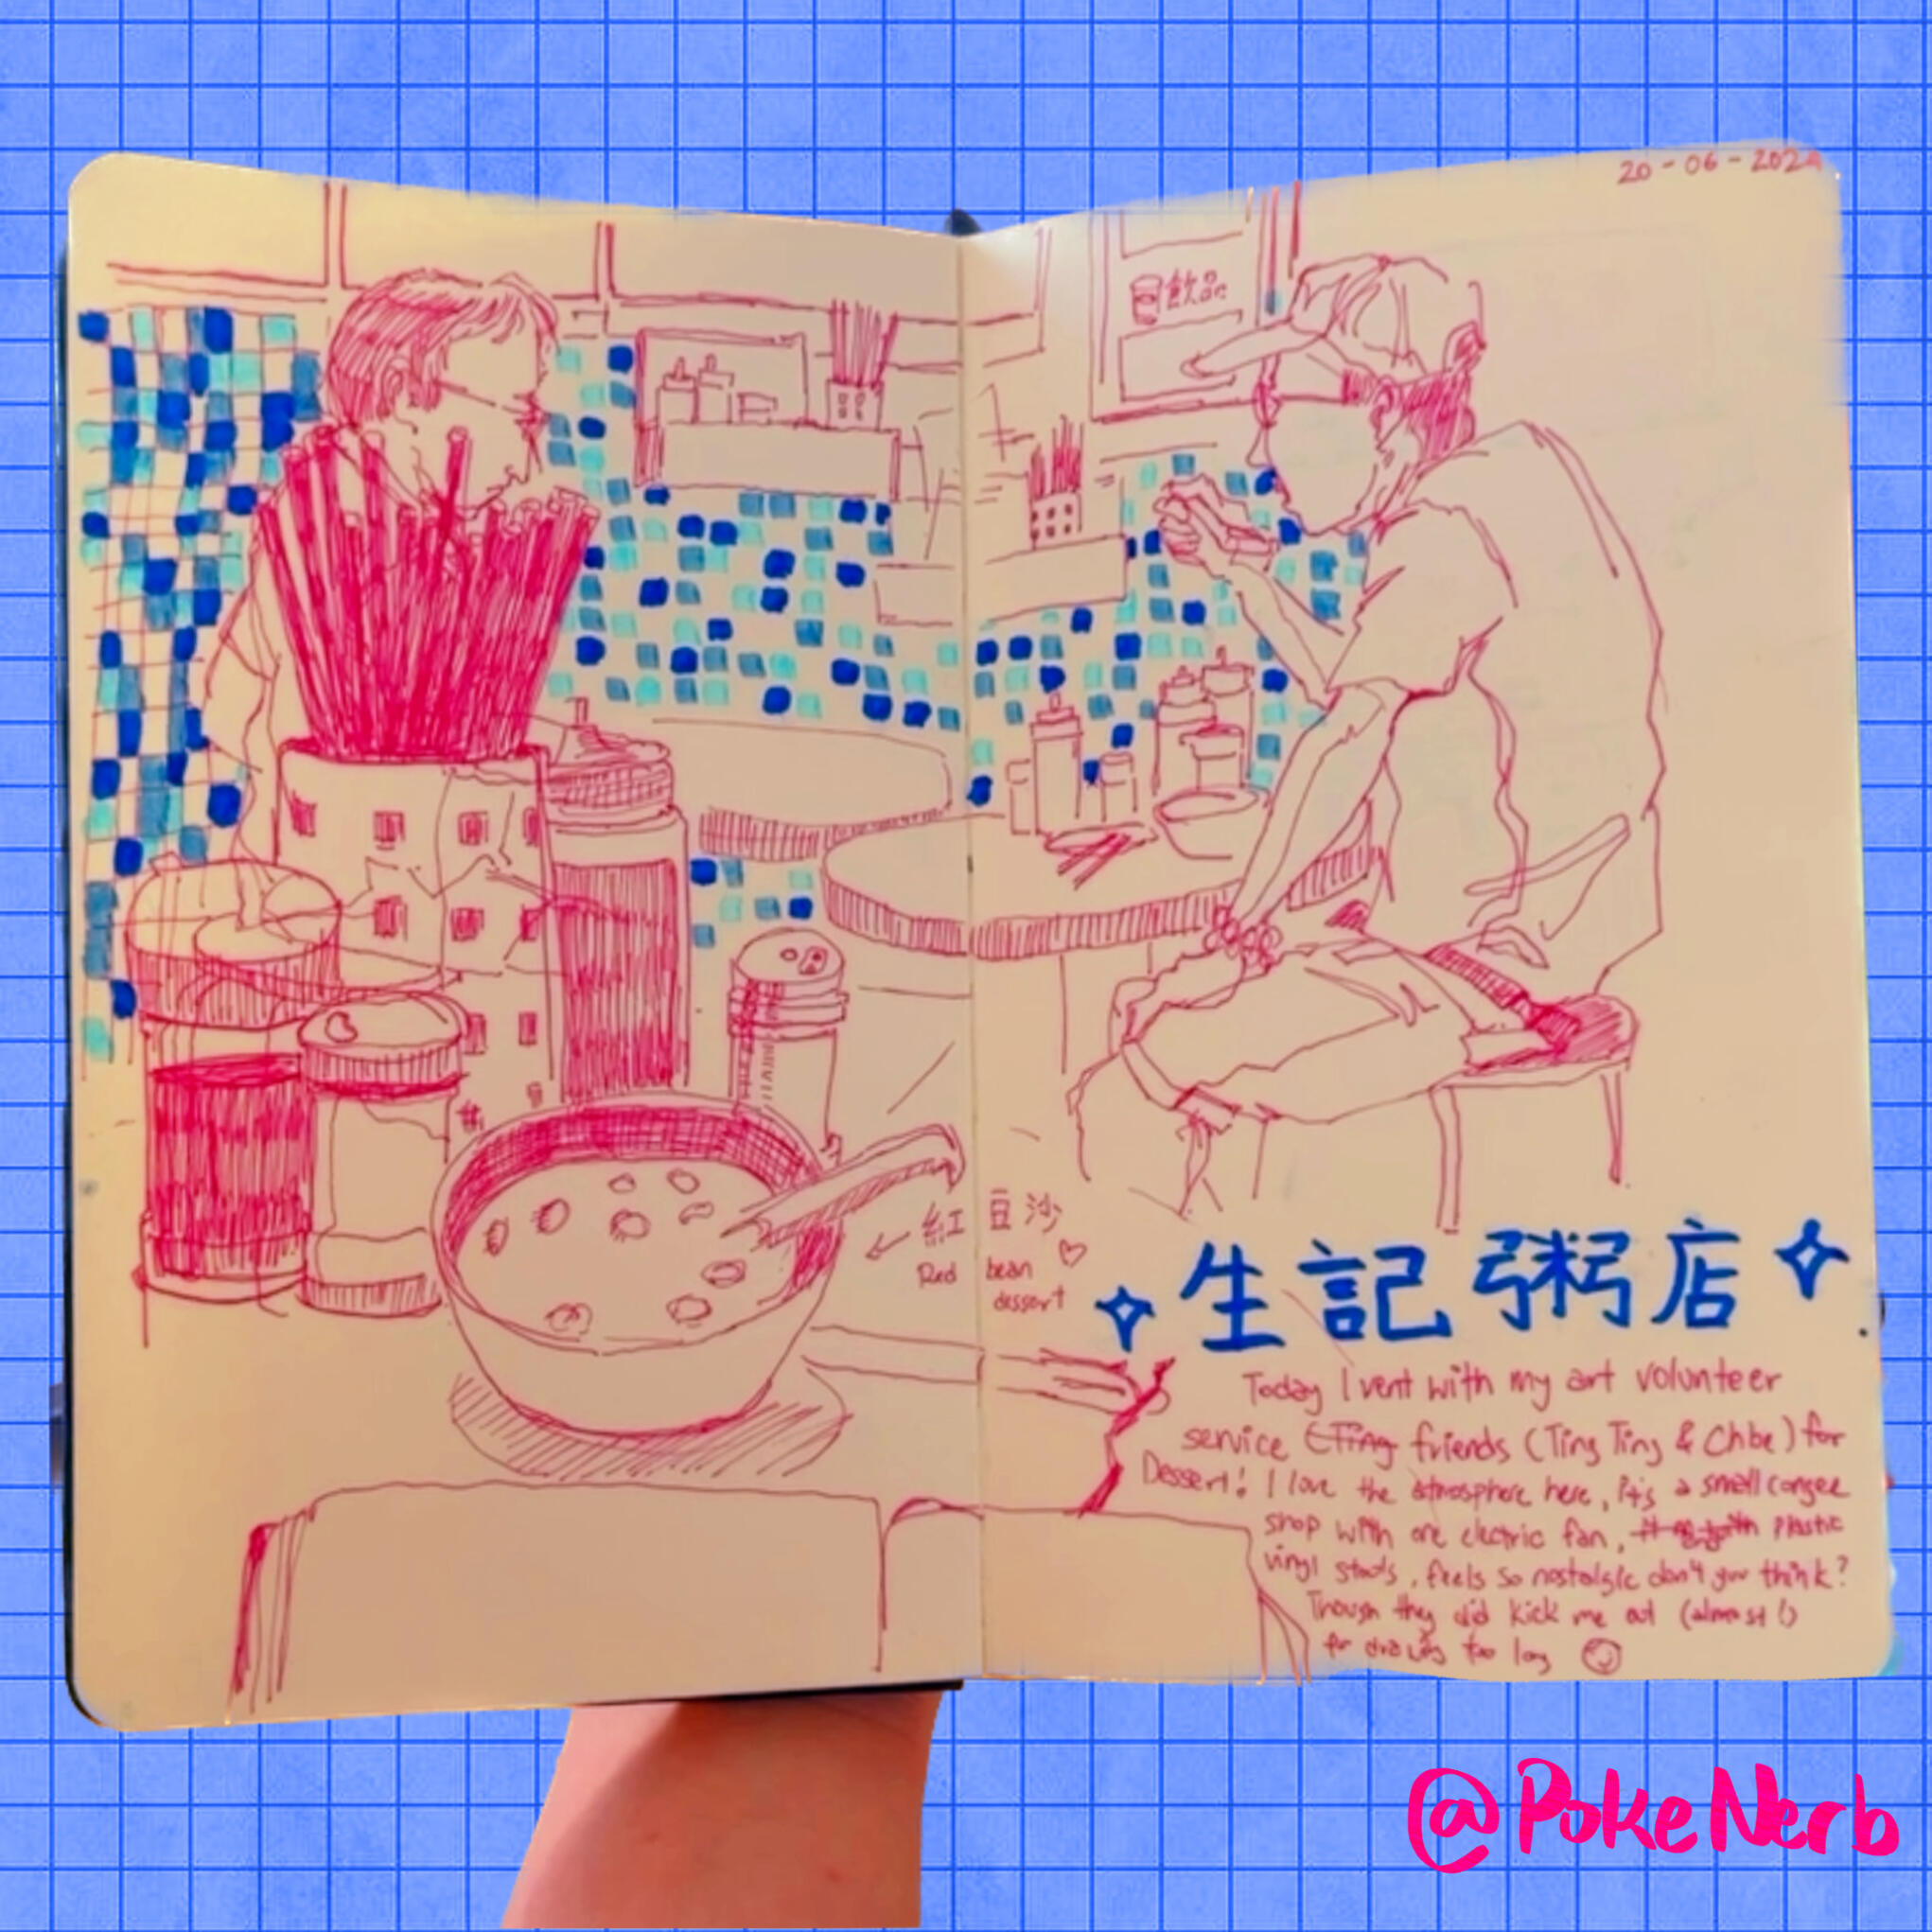 20-06-2024
飲品
紅豆沙
Red bean
dessert
生記粥店
Today I went with my art volunteer
service (Ting friends (Ting Ting & Chloe) for
Dessert! I love the atmosphere here, it's a small congee
shop with one electric fan, plastic
vinyl stools, feels so nostalgic don't you think?
Though they did kick me out (almost!)
for drawing too long
@PokeNerb